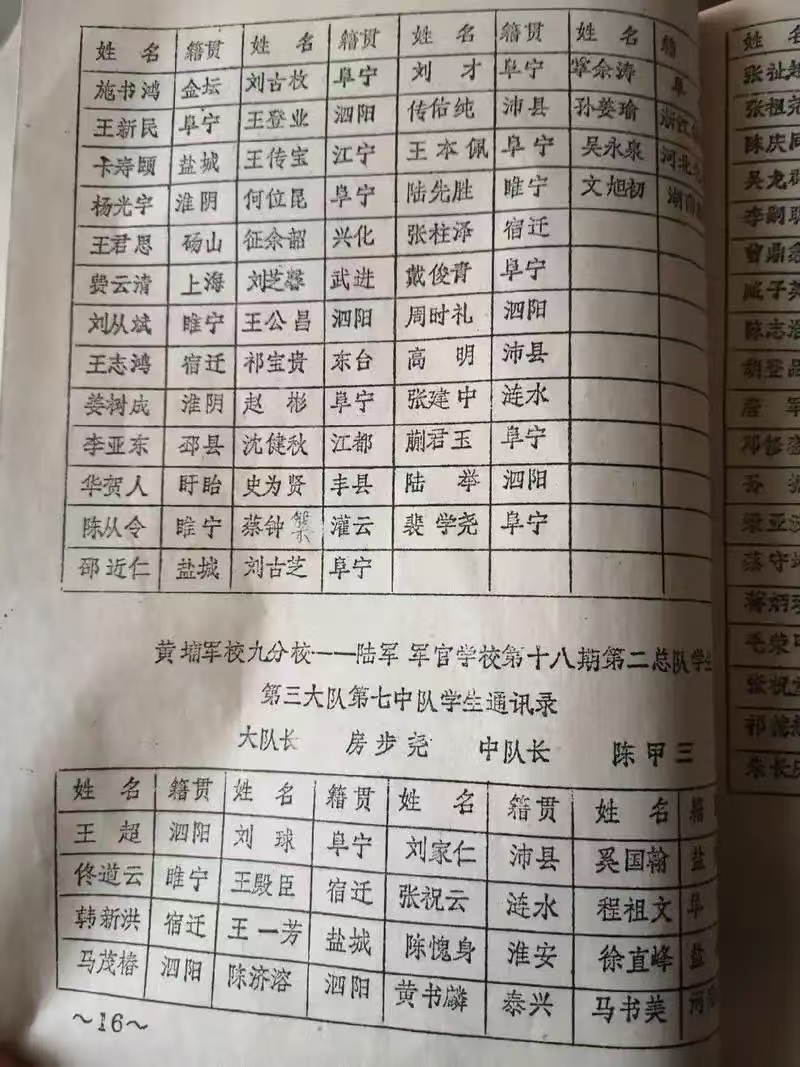 姓 名 籍贯 姓 名 籍贯 姓 名 籍贯 姓 名 籍
施书鸿 金坛 刘古枚 阜宁 刘 才 阜宁 覃余涛 阜
王新民 阜宁 王登业 泗阳 传佑纯 沛县 孙姜瑜 浙江
卡寿颐 盐城 王传宝 江宁 王本佩 阜宁 吴永泉 河北
杨光宇 淮阴 何位昆 阜宁 陆先胜 睢宁 文旭初 湖南
王君恩 砀山 征余韶 兴化 张柱泽 宿迁
费云清 上海 刘芝馨 武进 戴俊青 阜宁
刘从斌 睢宁 王公昌 泗阳 周时礼 泗阳
王志鸿 宿迁 祁宝贵 东台 高 明 沛县
姜树成 淮阴 赵 彬 阜宁 张建中 涟水
李亚东 邳县 沈健秋 江都 蒯君玉 阜宁
华贺人 盱眙 史为贤 丰县 陆 举 泗阳
陈从令 睢宁 蔡钟 灌云 裴学尧 阜宁
邵近仁 盐城 刘古芝 阜宁
黄埔军校九分校——陆军 军官学校第十八期第二总队学生
第三大队第七中队学生通讯录
大队长 房步尧 中队长 陈甲三
姓 名 籍贯 姓 名 籍贯 姓 名 籍贯 姓 名 籍
王 超 泗阳 刘 球 阜宁 刘家仁 沛县 奚国翰 盐
佟道云 睢宁 王殿臣 宿迁 张祝云 涟水 程祖文 阜
韩新洪 宿迁 王一芳 盐城 陈愧身 淮安 徐直峰 盐
马茂椿 泗阳 陈济溶 泗阳 黄书麟 泰兴 马书美 河
～16～
张祉超
张祖尧
陈庆同
吴龙群
李嗣聪
曾鼎
臧子英
陈志浩
胡登品
詹 军
邓修
孙
梁亚
蒋炳
毛荣中
张祝堂
祁
朱长